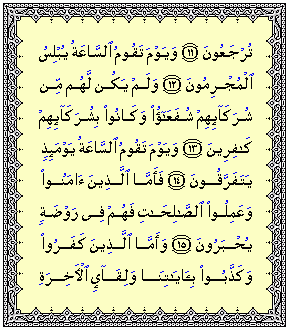 تُرْجَعُونَ ١١ وَيَوْمَ تَقُومُ ٱلسَّاعَةُ يُبْلِسُ
ٱلْمُجْرِمُونَ ١٢ وَلَمْ يَكُن لَّهُم مِّن
شُرَكَآئِهِمْ شُفَعَٰٓؤُا۟ وَكَانُوا۟ بِشُرَكَآئِهِمْ
كَٰفِرِينَ ١٣ وَيَوْمَ تَقُومُ ٱلسَّاعَةُ يَوْمَئِذٍ
يَتَفَرَّقُونَ ١٤ فَأَمَّا ٱلَّذِينَ ءَامَنُوا۟
وَعَمِلُوا۟ ٱلصَّٰلِحَٰتِ فَهُمْ فِى رَوْضَةٍ
يُحْبَرُونَ ١٥ وَأَمَّا ٱلَّذِينَ كَفَرُوا۟
وَكَذَّبُوا۟ بِـَٔايَٰتِنَا وَلِقَآئِ ٱلْـَٔاخِرَةِ